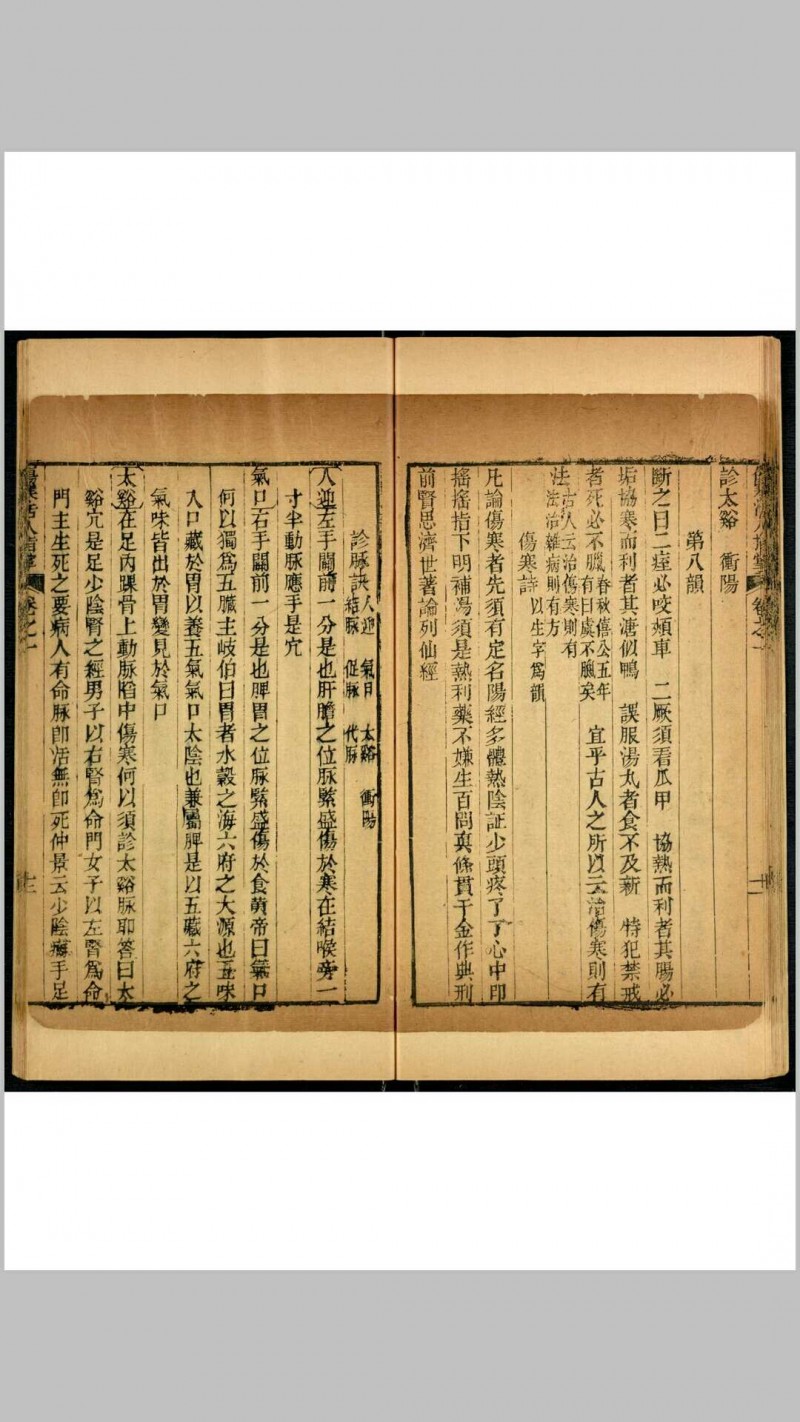 診太谿　衝陽
第八韻
斷之曰二痓必咬頰車　二厥須看爪甲　協熱而利者其腸必
垢協寒而利者其溏似鴨　誤服湯丸者食不及新　特犯禁戒
者死必不臘春秋僖公五年有曰虞不臘矣　宜乎古人之所以云治傷寒則有
法古人云治傷寒則有法治雜病則有方
傷寒詩以生字爲韻
凡論傷寒者先須有定名陽經多體熱陰証少頭疼了了心中印
搖搖指下明補湯須是熱利藥不嫌生百問真條貫千金作典刑
前賢思濟世著論列仙經
診脉訣人迎　氣口　太谿　衝陽　結脉　促脉　代脉
人迎左手關前一分是也肝膽之位脉緊盛傷於寒在結喉旁一
寸半動脉應手是穴
氣口右手關前一分是也脾胃之位脉緊盛傷於食黄帝曰氣口
何以獨爲五臟主岐伯曰胃者水穀之海六府之大源也五味
入口藏於胃以養五氣氣口太陰也兼屬脾是以五藏六府之
氣味皆出於胃變見於氣口
太谿在足内踝骨上動脉陷中傷寒何以須診太谿脉耶答曰太
谿穴是足少陰腎之經男子以右腎爲命門女子以左腎爲命
門主生死之要病人有命脉卽活無卽死仲景云少陰病手足